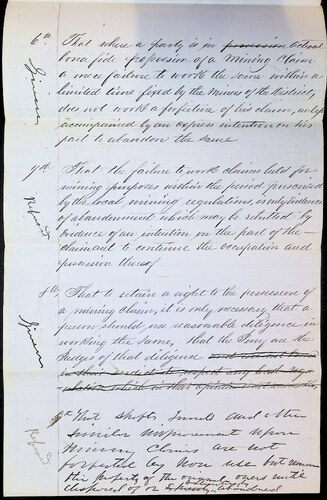 6th That where a party is in possession actual
bona fide possession of a Mining Claim
a mere failure to work the same within a
limited time fixed by the Miners of the District,
does not work a forfeiture of his claim, unless
accompanied by an express intention on his
part to abandon the same
Given
7th That the failure to work claims held for
mining purposes within the period prescribed
by the local mining regulations, is only evidence
of abandonment which may be rebutted by
evidence of an intention on the part of the
claimant to continue the occupation and
possession thereof
Refused
8th That to retain a right to the possession of
a mining claim, it is only necessary that a
person should use reasonable diligence in
working the same, that the Jury are the
Judges of that diligence
Given
9th That shafts Tunnels and other
similar improvement upon
mining claims are not
forfeited by non use but remain
the property of the original owners until
disposed of or abandoned
Refused